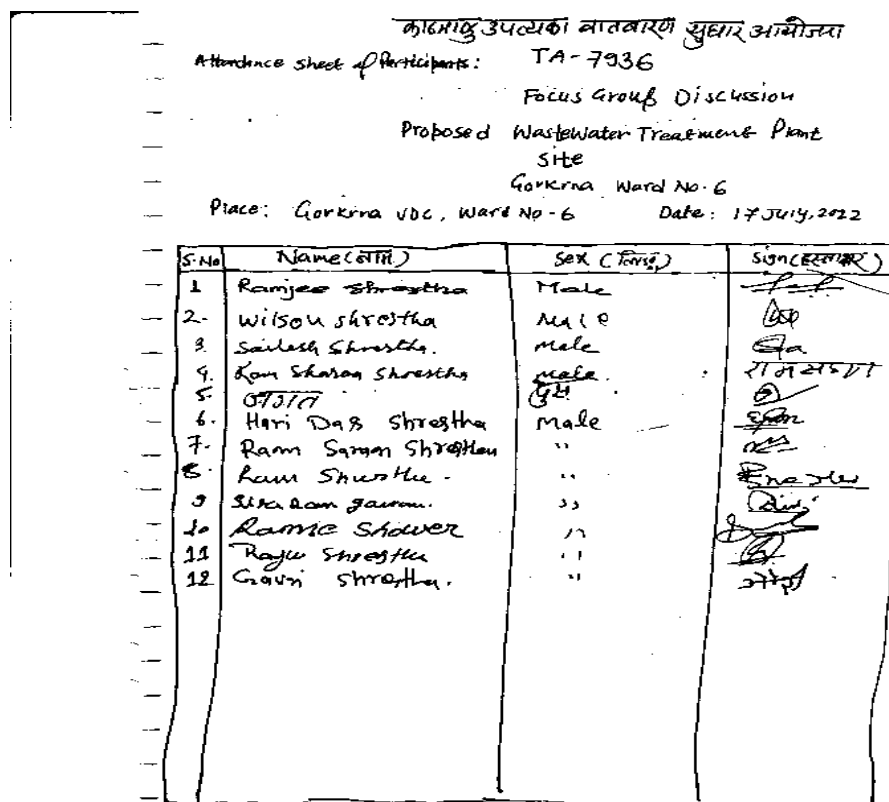 काठमाण्डु उपत्यका वातवारण सुधार आयोजना
Attendance sheet of Participants: TA-7936
Focus Group Discussion
Proposed WasteWater Treatment Plant
Site
Gorkrna Ward No-6
Place: Gorkrna VDC, Ward No-6 Date: 17 July, 2022
S.No Name (नाम) Sex (लिङ्ग) Sign (हस्ताक्षर)
1 Ramjee Shrestha Male
2- Wilson Shrestha Male
3. Sailesh Shrestha. Male
4. Ram Sharan Shrestha Male. रामशरण
5. जगत
6. Hari Das Shrestha Male
7. Ram Saran Shrestha "
8. Ram Shrestha - "
9 Sita Ram "
10 Rame Shower "
11 Raju Shrestha "
12 Gauri Shrestha. "